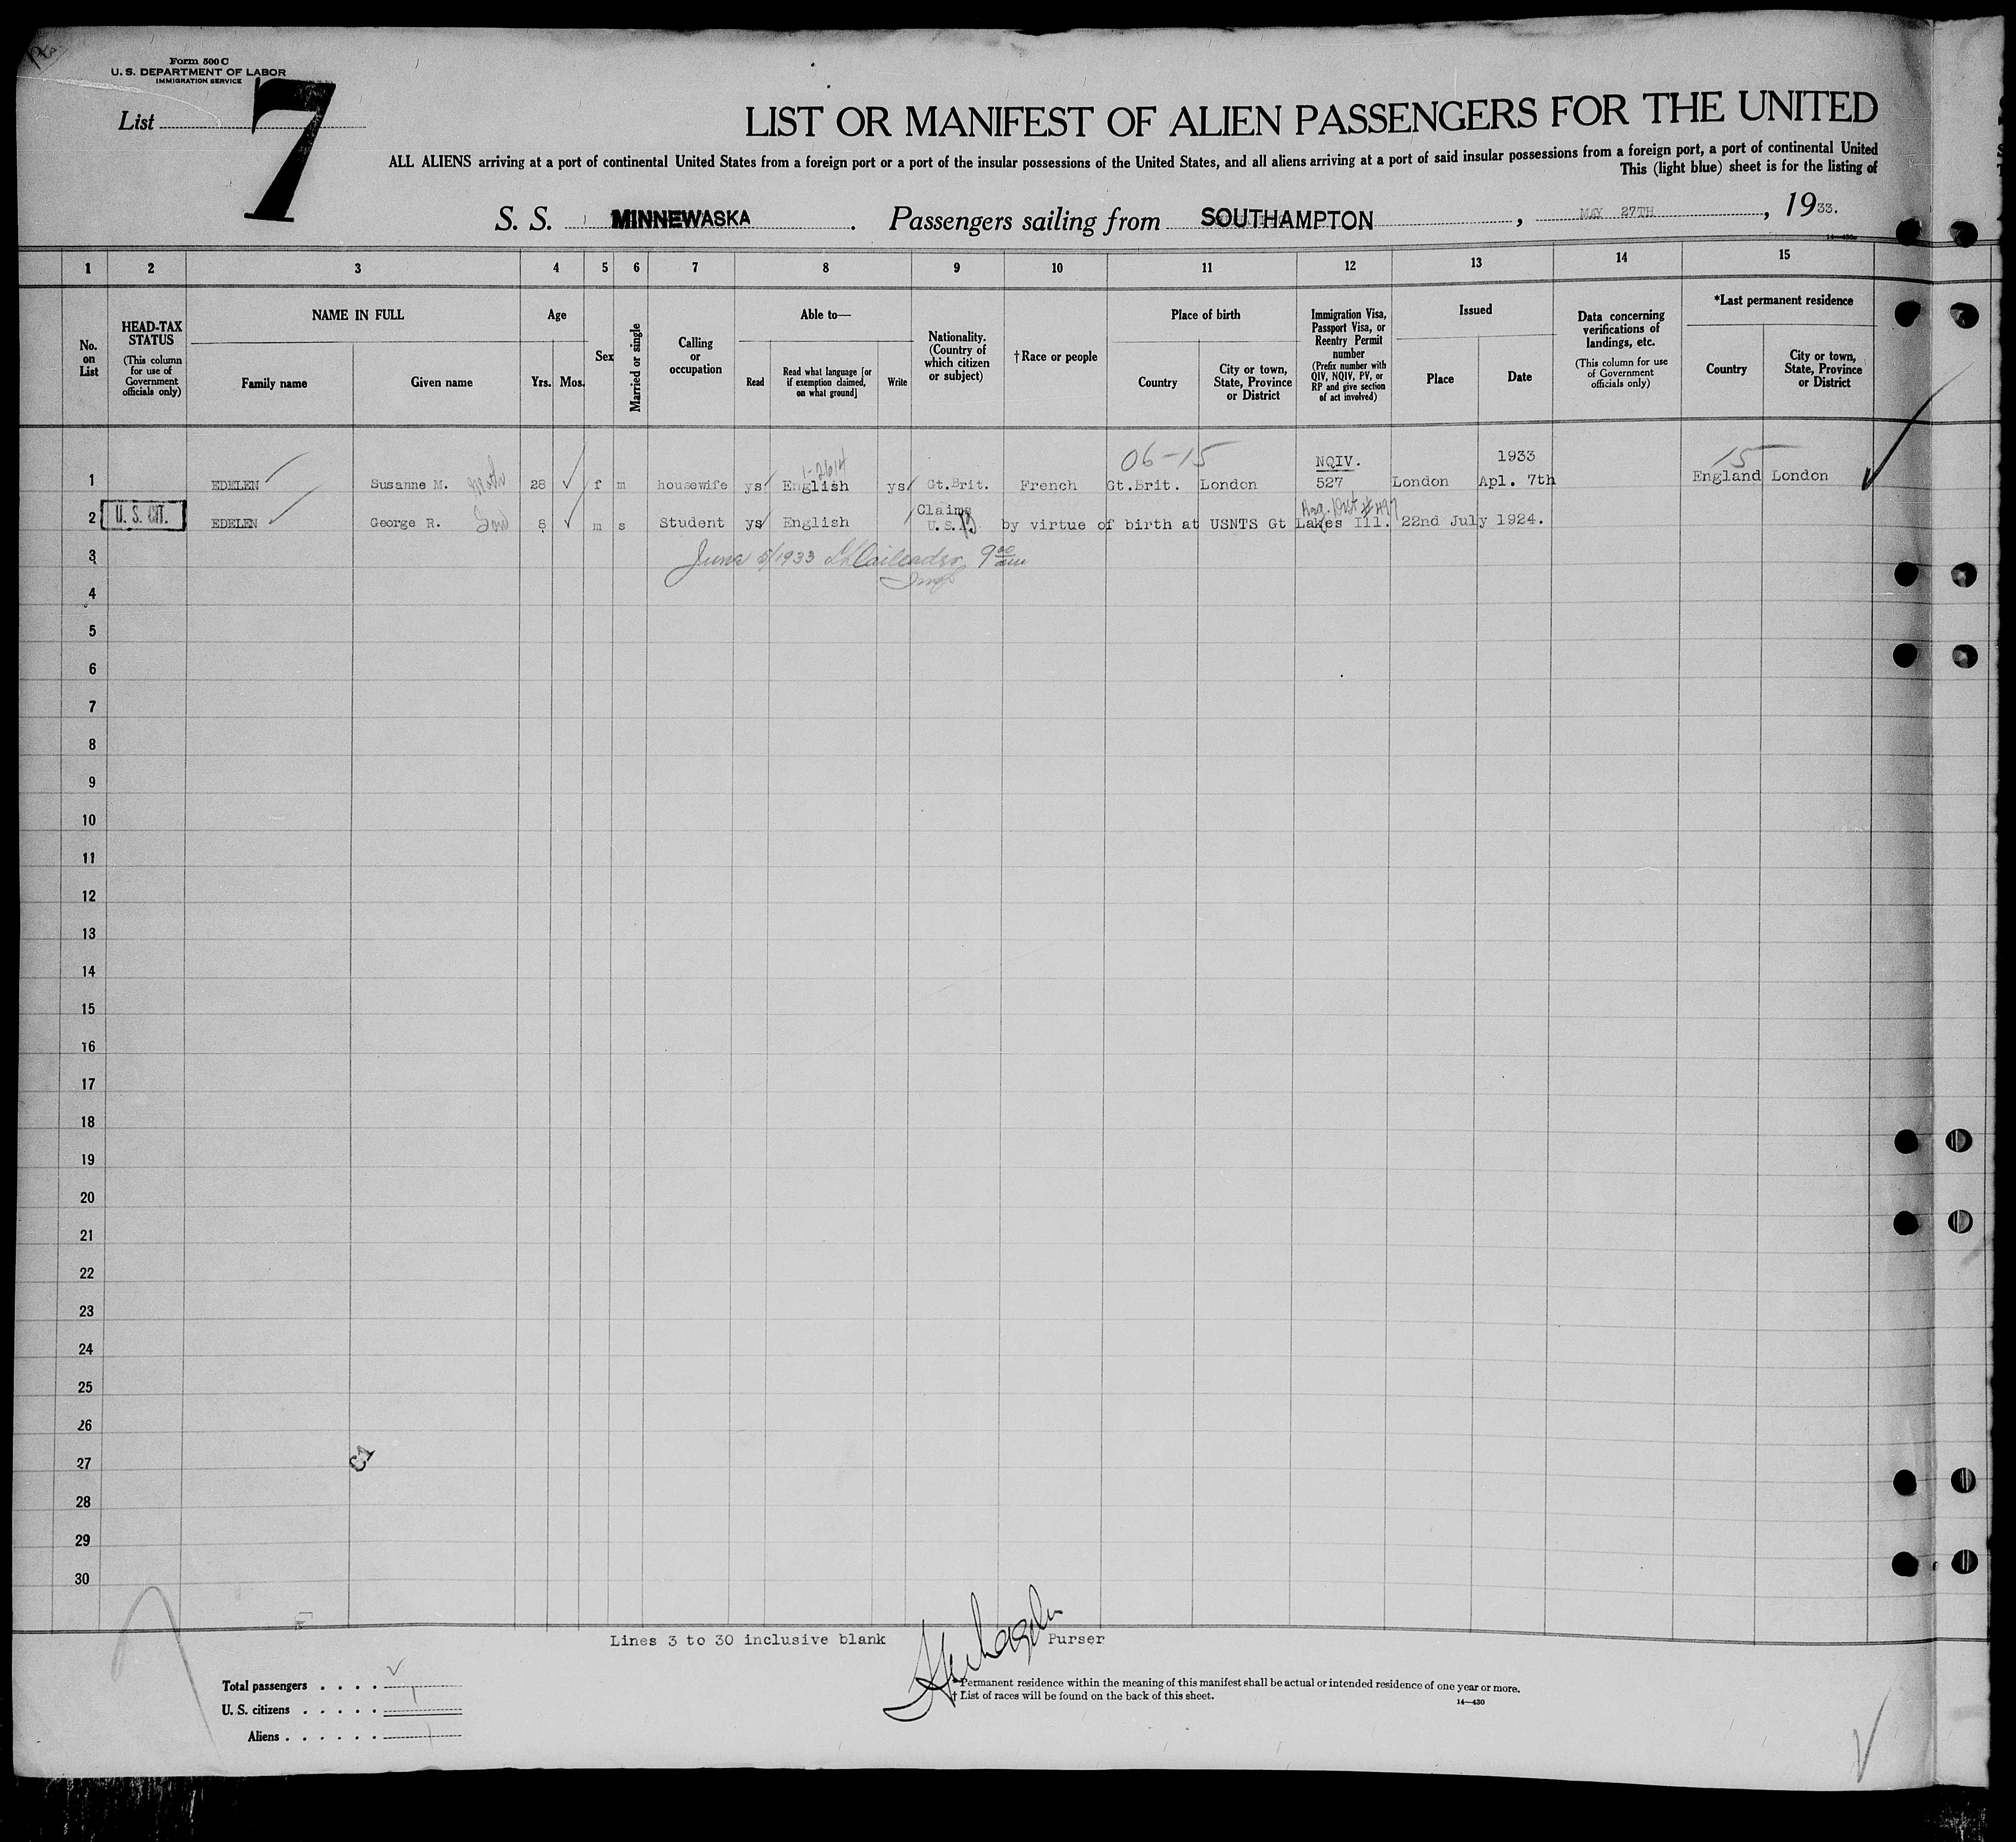 Form 500 C
U. S. DEPARTMENT OF LABOR
IMMIGRATION SERVICE
List 7
LIST OR MANIFEST OF ALIEN PASSENGERS FOR THE UNITED
ALL ALIENS arriving at a port of continental United States from a foreign port or a port of the insular possessions of the United States, and all aliens arriving at a port of said insular possessions from a foreign port, a port of continental United
This (light blue) sheet is for the listing of
S. S. MINNEWASKA . Passengers sailing from SOUTHAMPTON , MAY 27TH , 1933.
1 2 3 4 5 6 7 8 9 10 11 12 13 14 15
No. on List
HEAD-TAX STATUS (This column for use of Government officials only)
NAME IN FULL
Family name Given name
Age
Yrs. Mos.
Sex
Married or single
Calling or occupation
Able to—
Read Read what language [or if exemption claimed, on what ground] Write
Nationality. (Country of which citizen or subject)
†Race or people
Place of birth
Country City or town, State, Province or District
Immigration Visa, Passport Visa, or Reentry Permit number (Prefix number with QIV, NQIV, PV, or RP and give section of act involved)
Issued
Place Date
Data concerning verifications of landings, etc. (This column for use of Government officials only)
*Last permanent residence
Country City or town, State, Province or District
1-2614 06-15 NQIV. 1933 15
1 EDELEN Susanne M. 28 f m housewife ys English ys Gt.Brit. French Gt.Brit. London 527 London Apl. 7th England London
2 U. S. CIT. EDELEN George R. Son 8 m s Student ys English Claims U.S. by virtue of birth at USNTS Gt Lakes Ill. 22nd July 1924.
3 June 5/1933 9 00 am
4
5
6
7
8
9
10
11
12
13
14
15
16
17
18
19
20
21
22
23
24
25
26
27
28
29
30
Lines 3 to 30 inclusive blank Purser
Total passengers . . . .
U. S. citizens . . . . . 1
Aliens . . . . . . 1
*Permanent residence within the meaning of this manifest shall be actual or intended residence of one year or more.
† List of races will be found on the back of this sheet.
14—430